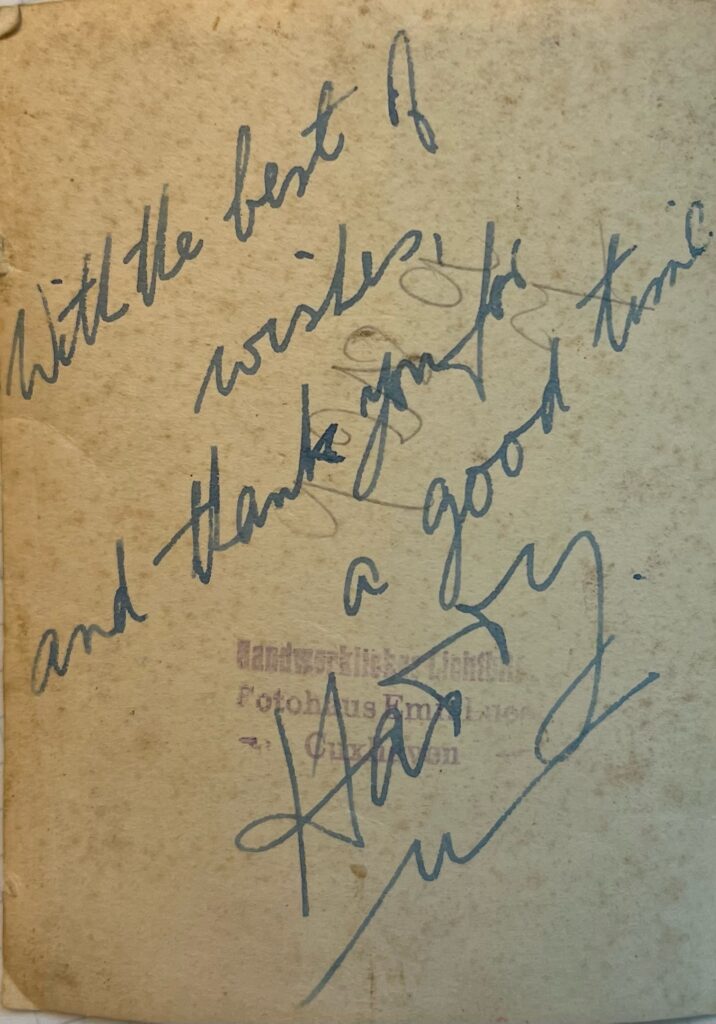 With the best of
wishes,
and thank you for
a good time
Harry.
Handwerkliches Lichtbild
Fotohaus Emil
Cuxhaven